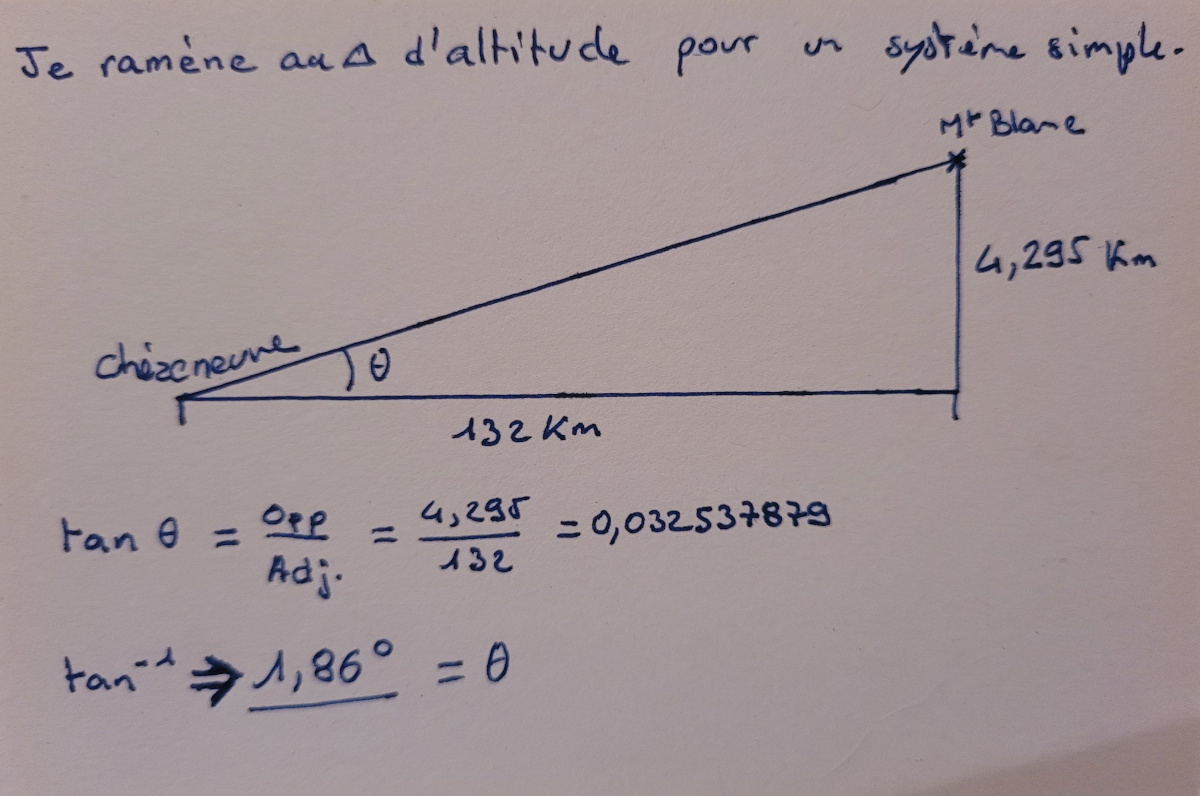 Je ramène au Δ d'altitude pour un système simple.
Mt Blanc
4,295 Km
Chézeneuve
θ
132 Km
tan θ = Opp / Adj. = 4,295 / 132 = 0,032537879
tan⁻¹ ⇒ 1,86° = θ